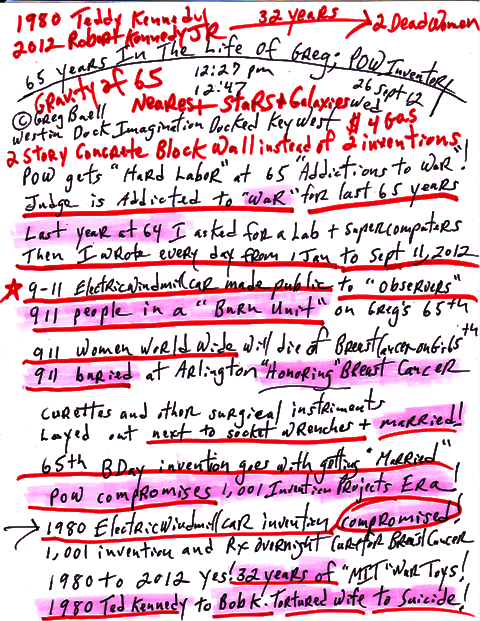 1980 Teddy Kennedy 32 years → 2 Dead Women
2012 Robert Kennedy JR
65 years In The Life of Greg; POW Inventor
Gravity of 65 12:27 pm 26 Sept 12
12:47 Wed
Nearest Stars & Galaxies
© Greg Buell $4 Gas
Westin Dock Imagination Docked Key West
2 Story Concrete Block Wall instead of 2 inventions
POW gets "Hard Labor" at 65 "Addictions to War"!
Judge is Addicted to "War" for last 65 years
Last year at 64 I asked for a Lab + Supercomputers
Then I wrote every day from 1 Jan to Sept 11, 2012
9-11 Electricwindmillcar made public to "Observers"
911 people in a "Burn Unit" on Greg's 65th
911 women world wide will die of Breast Cancer on Girls 
911 buried at Arlington "Honoring" Breast Cancer
Curettes and other surgical instriments
Layed out next to socket wrenches + married!
65th BDay invention goes with getting "Married"
POW compromises 1,001 Invention Projects Era!
→ 1980 Electricwindmillcar invention compromised!
1,001 invention and Rx overnight cure for Breast Cancer
1980 to 2012 Yes! 32 years of "MIT" War Toys!
1980 Ted Kennedy to Bob K. Tortured Wife to Suicide!